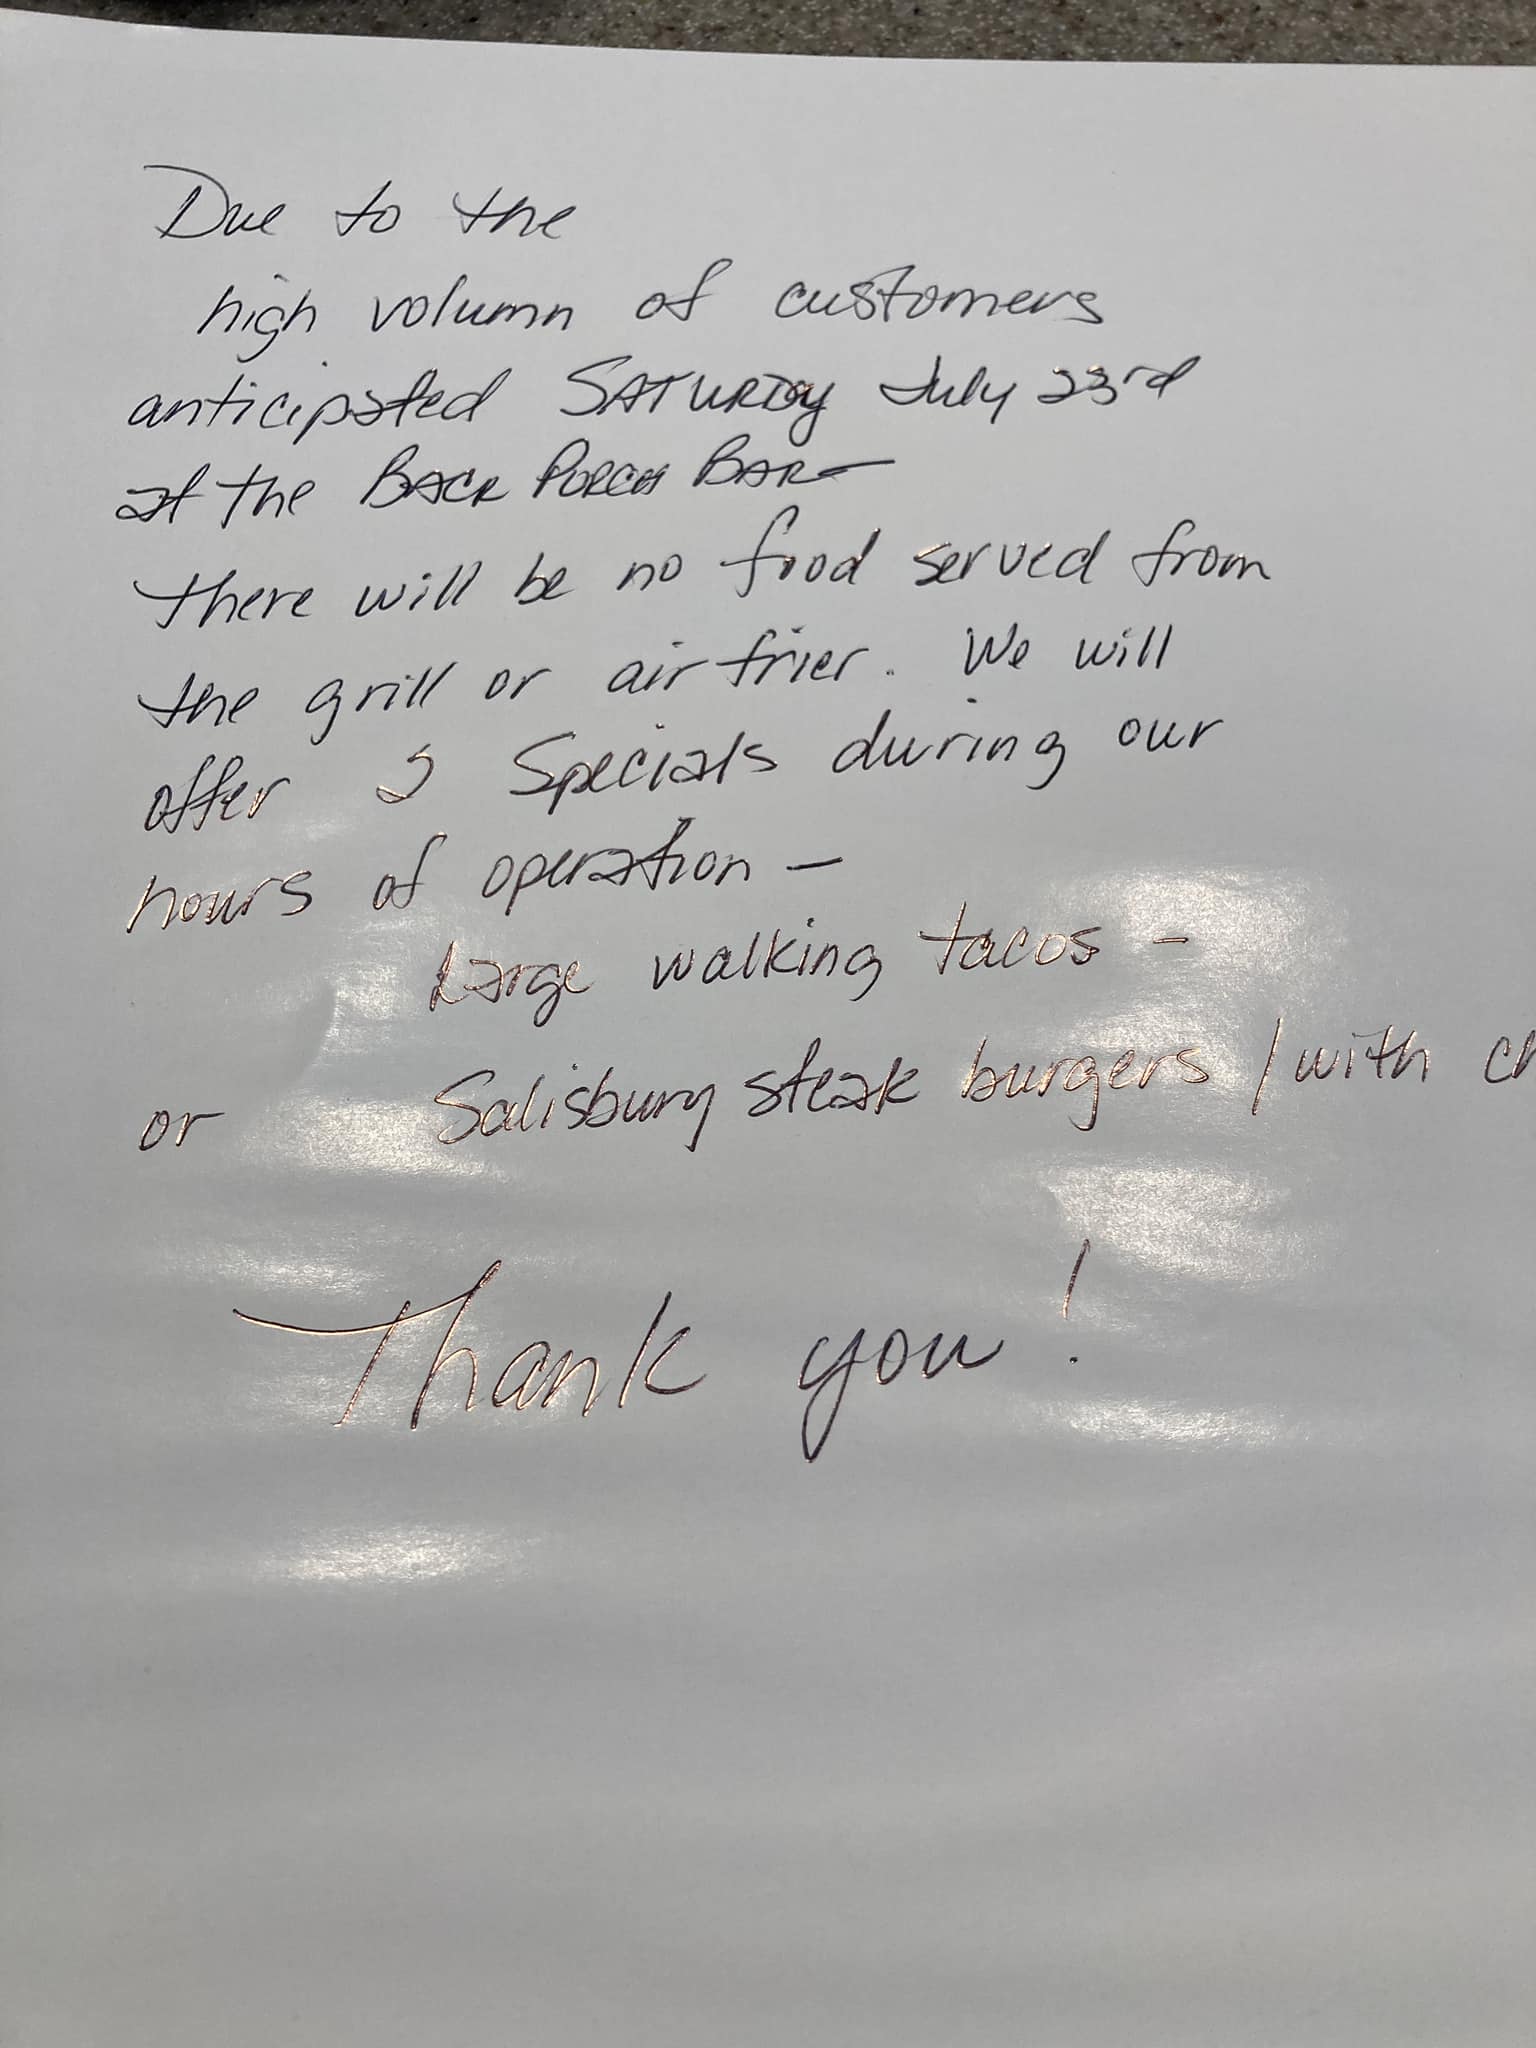 Due to the
high volumn of customers
anticipated SATURDAY July 23rd
at the BACK PORCH BAR -
there will be no food served from
the grill or air frier. We will
offer 2 Specials during our
hours of operation -
Large walking tacos -
or Salisbury steak burgers / with ch
Thank you!